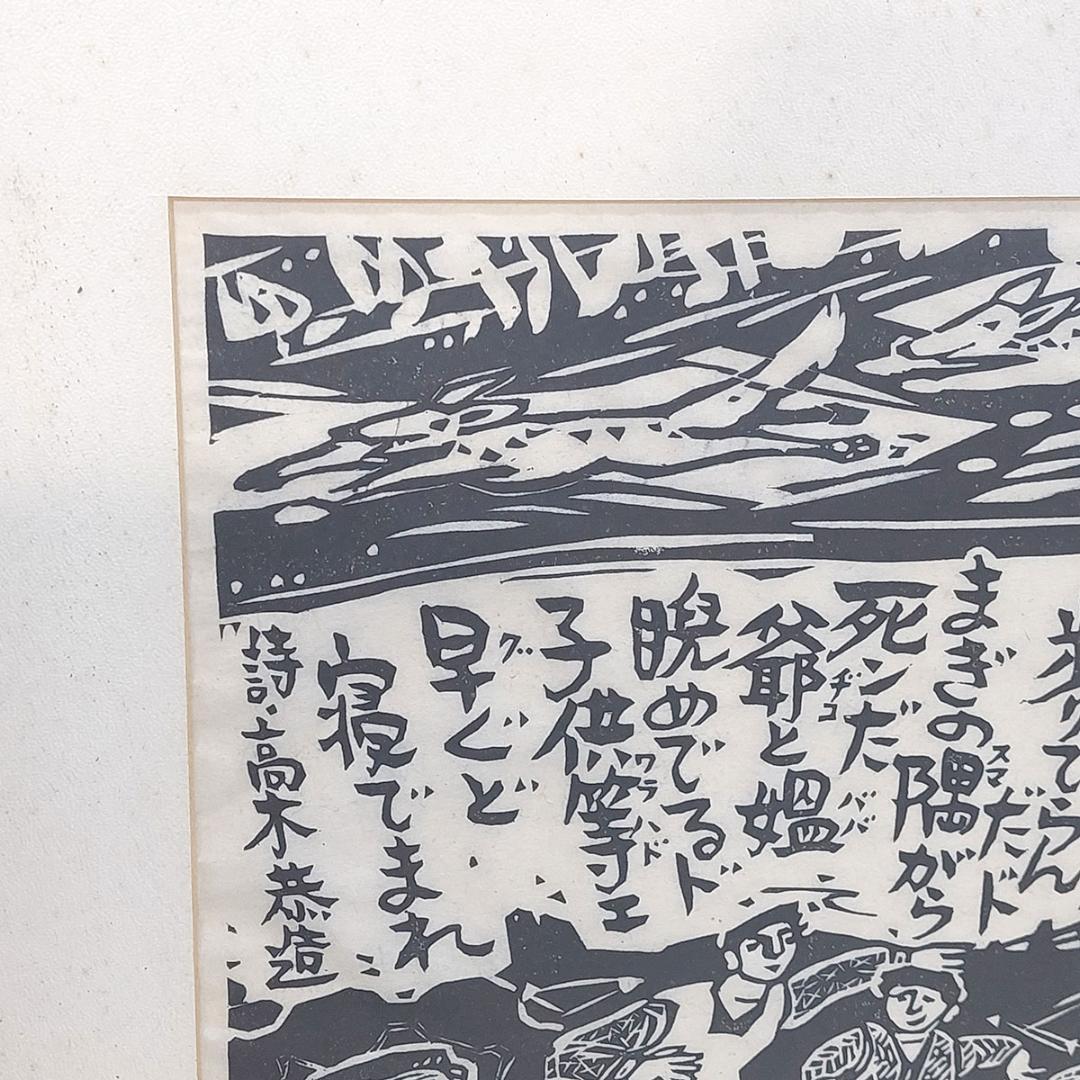 てらんだド
まぎの隅がら
スマ
死ンだ
爺と媼
ヂコ
ババ
睨めでるド
子供等エ
ワラハド
早ぐど
グ
寝でまれ
詩・高木恭造